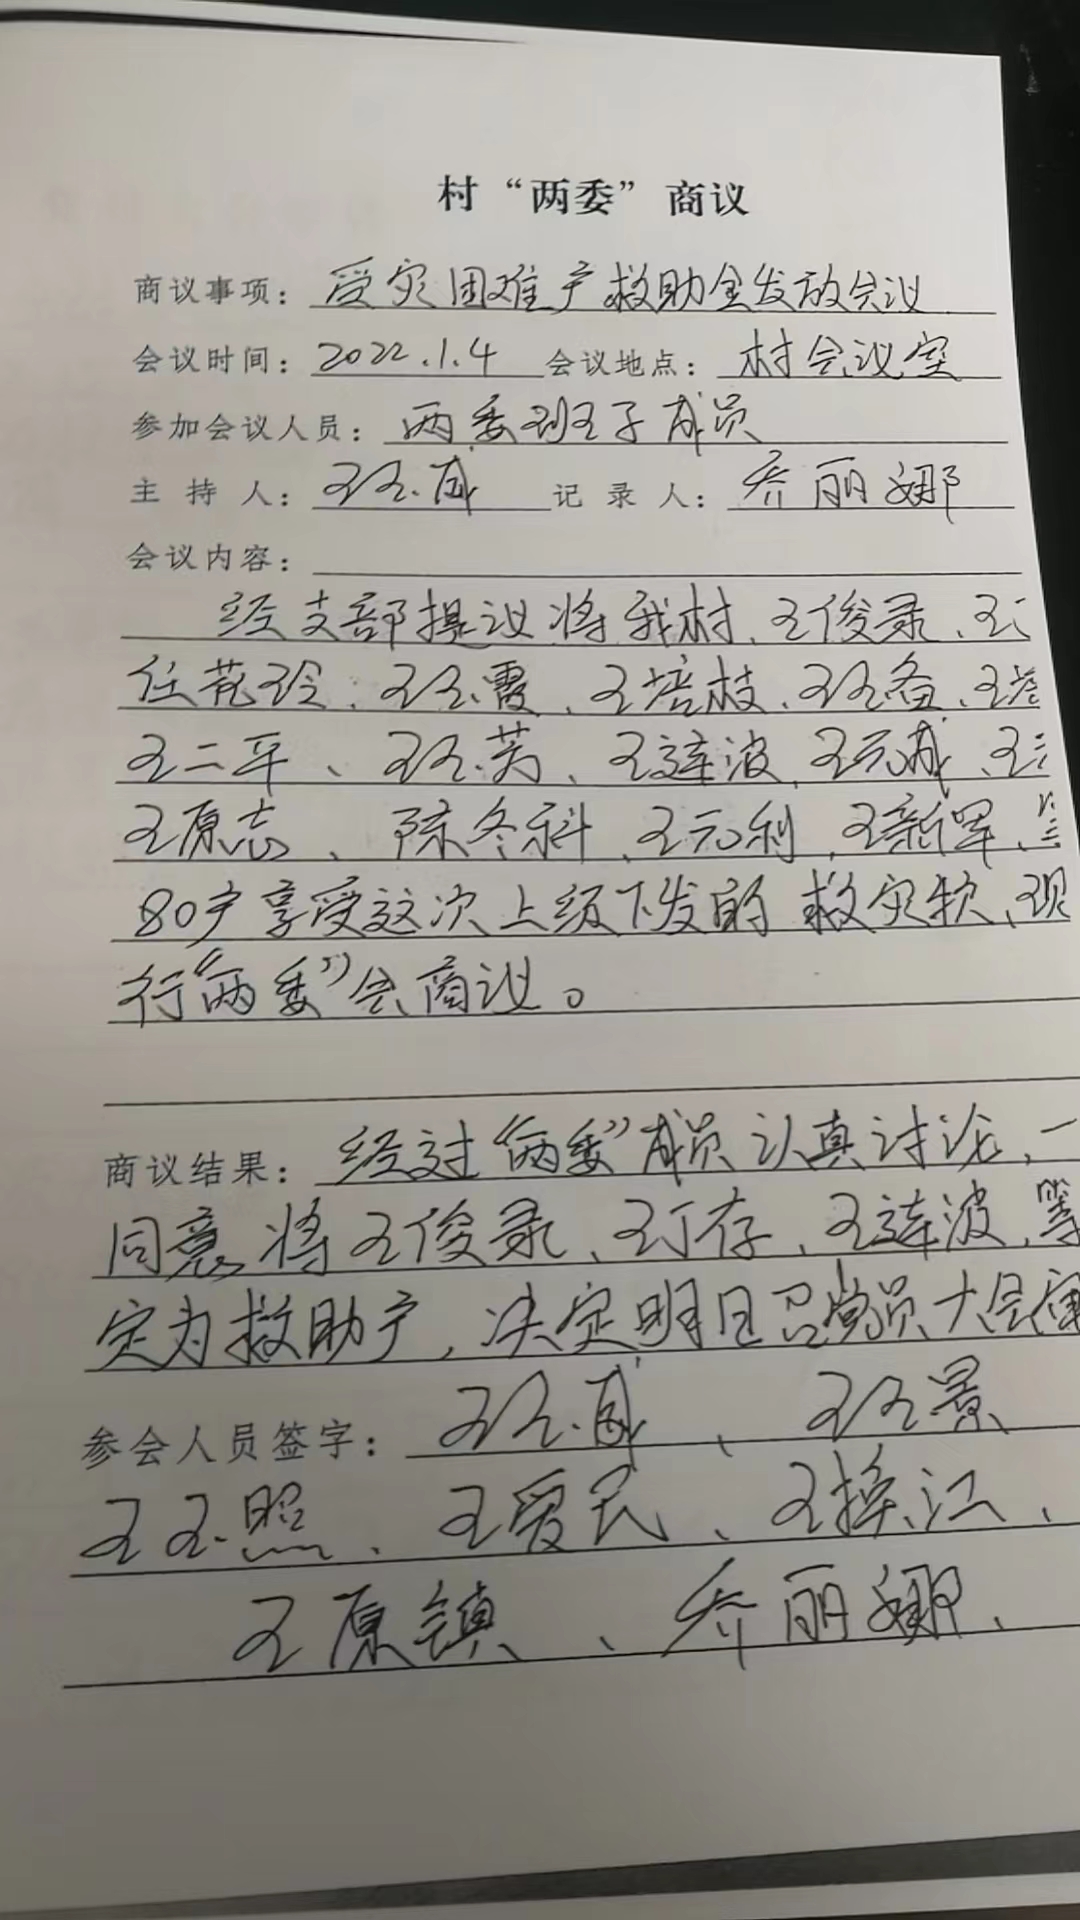 村“两委”商议
商议事项：受灾困难户救助金发放会议
会议时间：2022.1.4 会议地点：村会议室
参加会议人员：两委班子成员
主持人：王玉咸 记录人：乔丽娜
会议内容：
经支部提议将我村、王俊录、王
任花玲、王玉霞、王培枝、王玉备、王
王二平、王玉芳、王连波、王元成、王
王原志、陈冬科、王元利、王新军、
80户享受这次上级下发的救灾款、现
行“两委”会商议。
商议结果：经过“两委”成员认真讨论，一
同意将王俊录、王丁存、王连波、等
定为救助户，决定明日召党员大会审
参会人员签字：王玉咸、王玉景
王玉照、王爱民、王择江、
王原镇、乔丽娜、